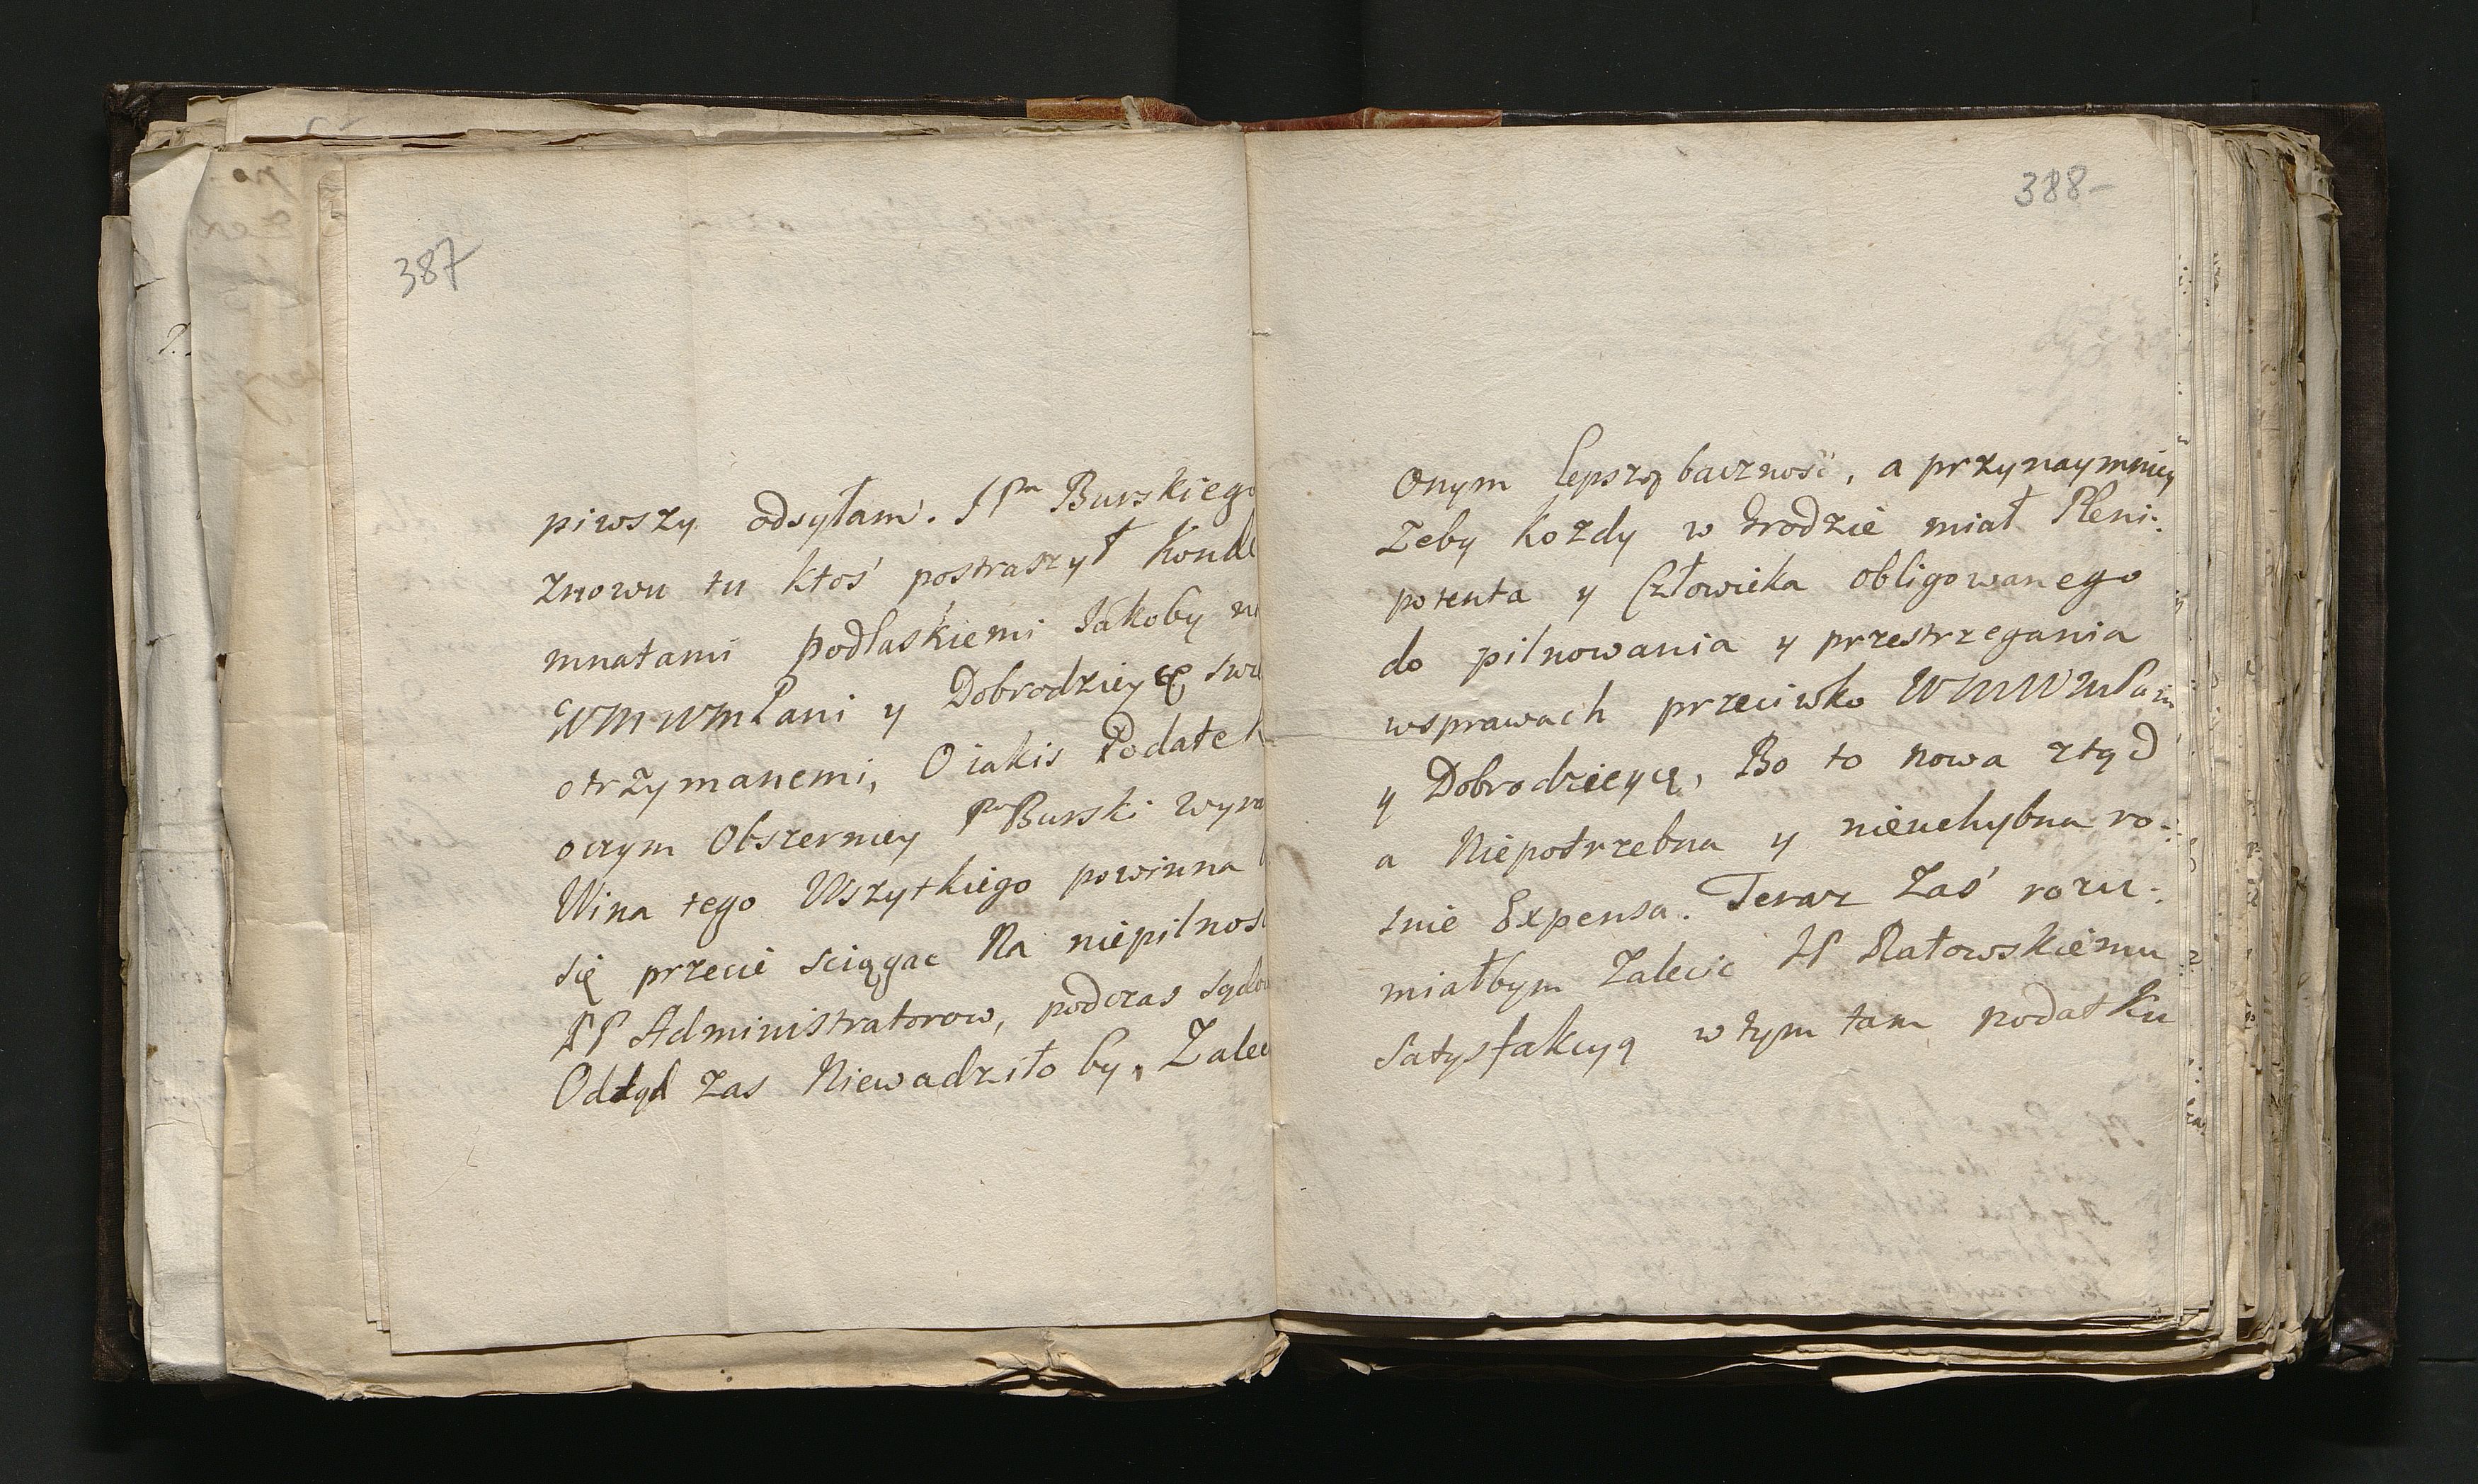 387
piwszy odsyłam. JPn Burskiego
Znowu tu ktoś postraszył Konde
mnatami podlaskiemi Jakoby n
WMWMPani y Dobrodzieyce
otrzymanemi, O iakis Podatek
oczym Obszerniey Pn Burski wyra
Wina tego Wszytkiego powinna
się przecie sciągac Na niepilnosc
PP Administratorow, podczas sądow
Odtąd zas Niewadziło by, Zalec
388-
Onym lepszą bacznosć, a przynaymniey
Zeby kozdy w Grodzie miał Pleni:
potenta y Człowieka obligowanego
do pilnowania y przestrzegania
wsprawach przeciwko WMWMPani
y Dobrodzieyce, Bo to nowa ztąd
a Niepotrzebna y nieuchybna ro:
snie Expensa. Teraz Zaś rozu:
miałbym Zalecic JP Ratowskiemu
Satysfakcyą wtym tam podatku